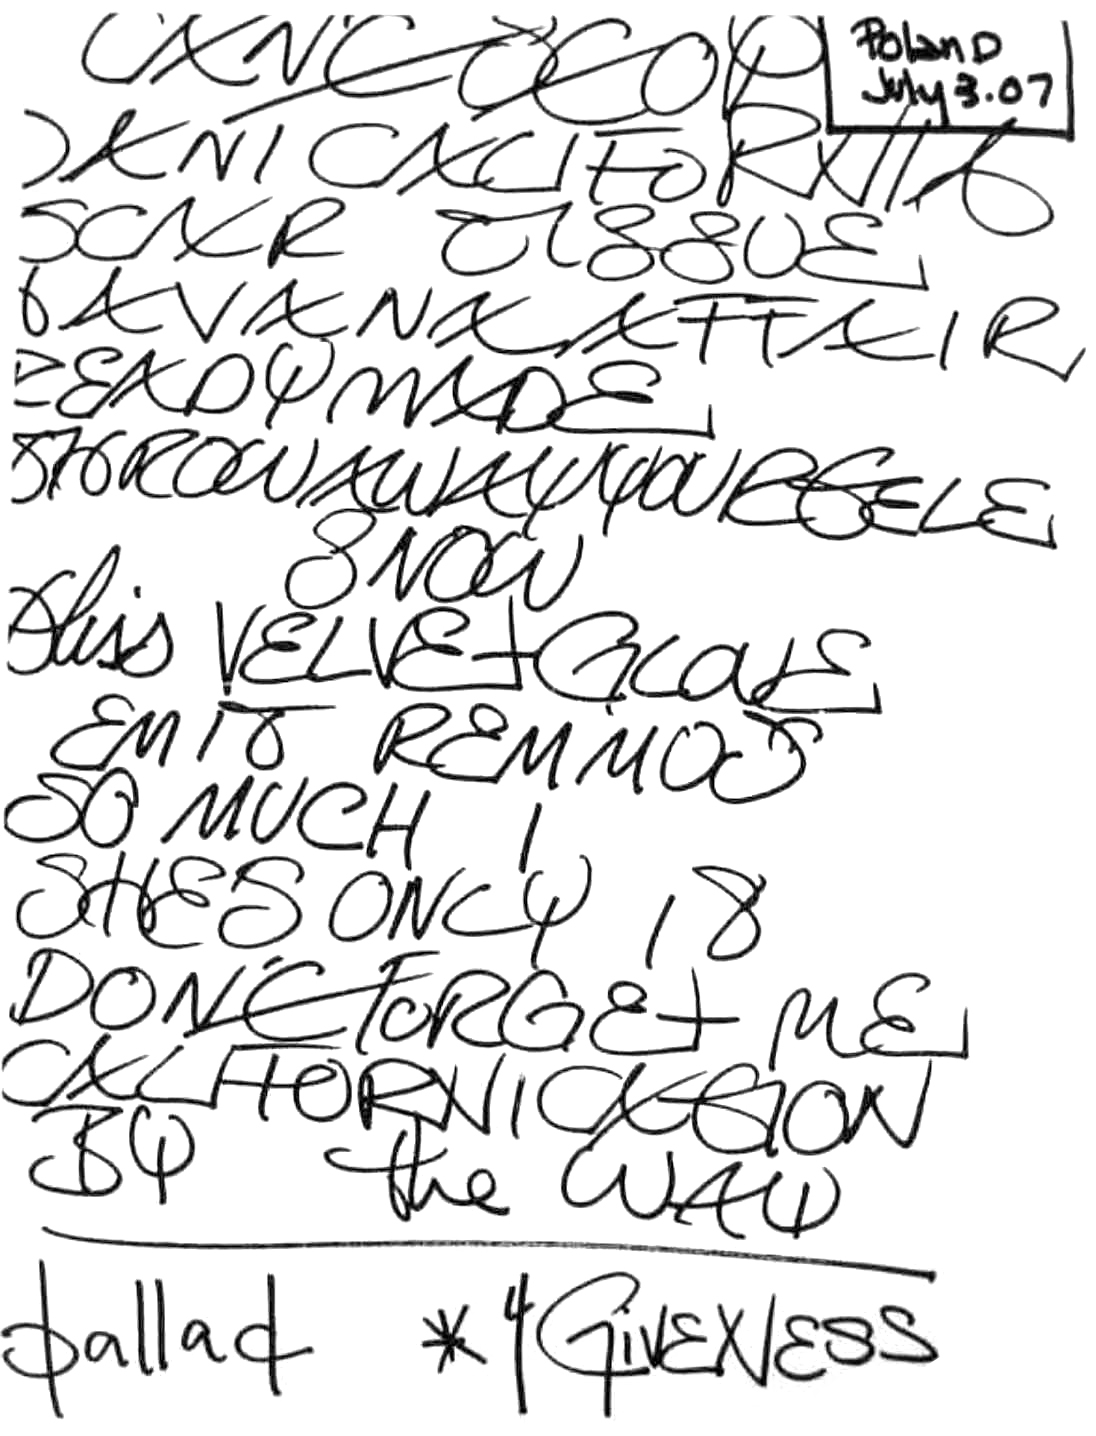 CAN'T STOP
Poland
July 3.07
DANI CALIFORNIA
SCAR TISSUE
HAVANA AFFAIR
READYMADE
THROW AWAY YOUR TELE
SNOW
This VELVET GLOVE
EMIT REMMUS
SO MUCH I
SHES ONLY 18
DONT FORGET ME
CALIFORNICATION
BY the WAY
ballad * 4GiVENESS